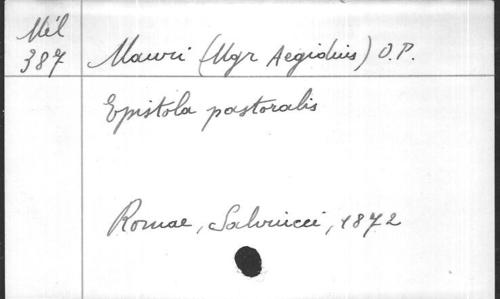 Mél
387
Mauri (Mgr Aegidius) O.P.
Epistola pastoralis
Romae, Salviucci, 1872